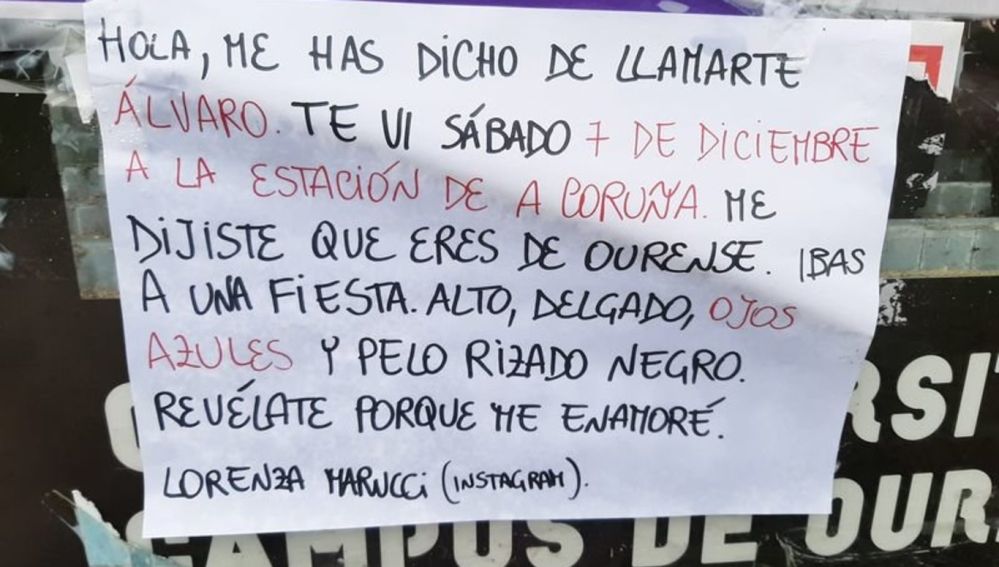 HOLA, ME HAS DICHO DE LLAMARTE
ÁLVARO. TE VI SÁBADO 7 DE DICIEMBRE
A LA ESTACIÓN DE A CORUÑA. ME
DIJISTE QUE ERES DE OURENSE. IBAS
A UNA FIESTA. ALTO, DELGADO, OJOS
AZULES Y PELO RIZADO NEGRO.
REVÉLATE PORQUE ME ENAMORÉ.
LORENZA MARUCCI (INSTAGRAM).
CAMPUS DE OUR